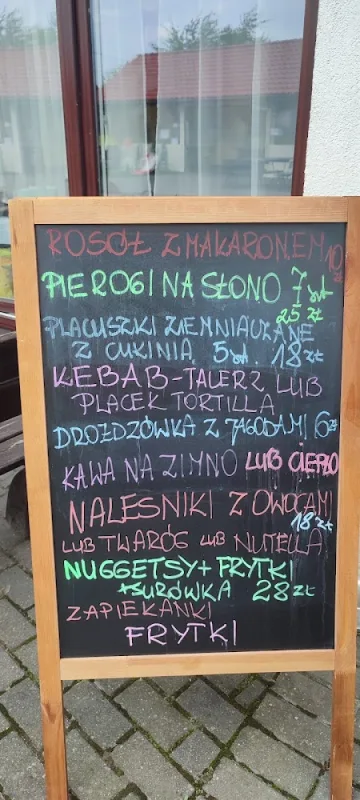 ROSÓŁ Z MAKARONEM 10 zł
PIEROGI NA SŁONO 7 szt
25 zł
PLACUSZKI ZIEMNIACZANE
Z CUKINIĄ 5 szt. 18 zł
KEBAB-TALERZ LUB
PLACEK TORTILLA
DROŻDŻÓWKA Z JAGODAMI 6 zł
KAWA NA ZIMNO LUB CIEPŁO
NALEŚNIKI Z OWOCAMI
18 zł
LUB TWARÓG LUB NUTELLA
NUGGETSY+FRYTKI
+SURÓWKA 28 zł
ZAPIEKANKI
FRYTKI